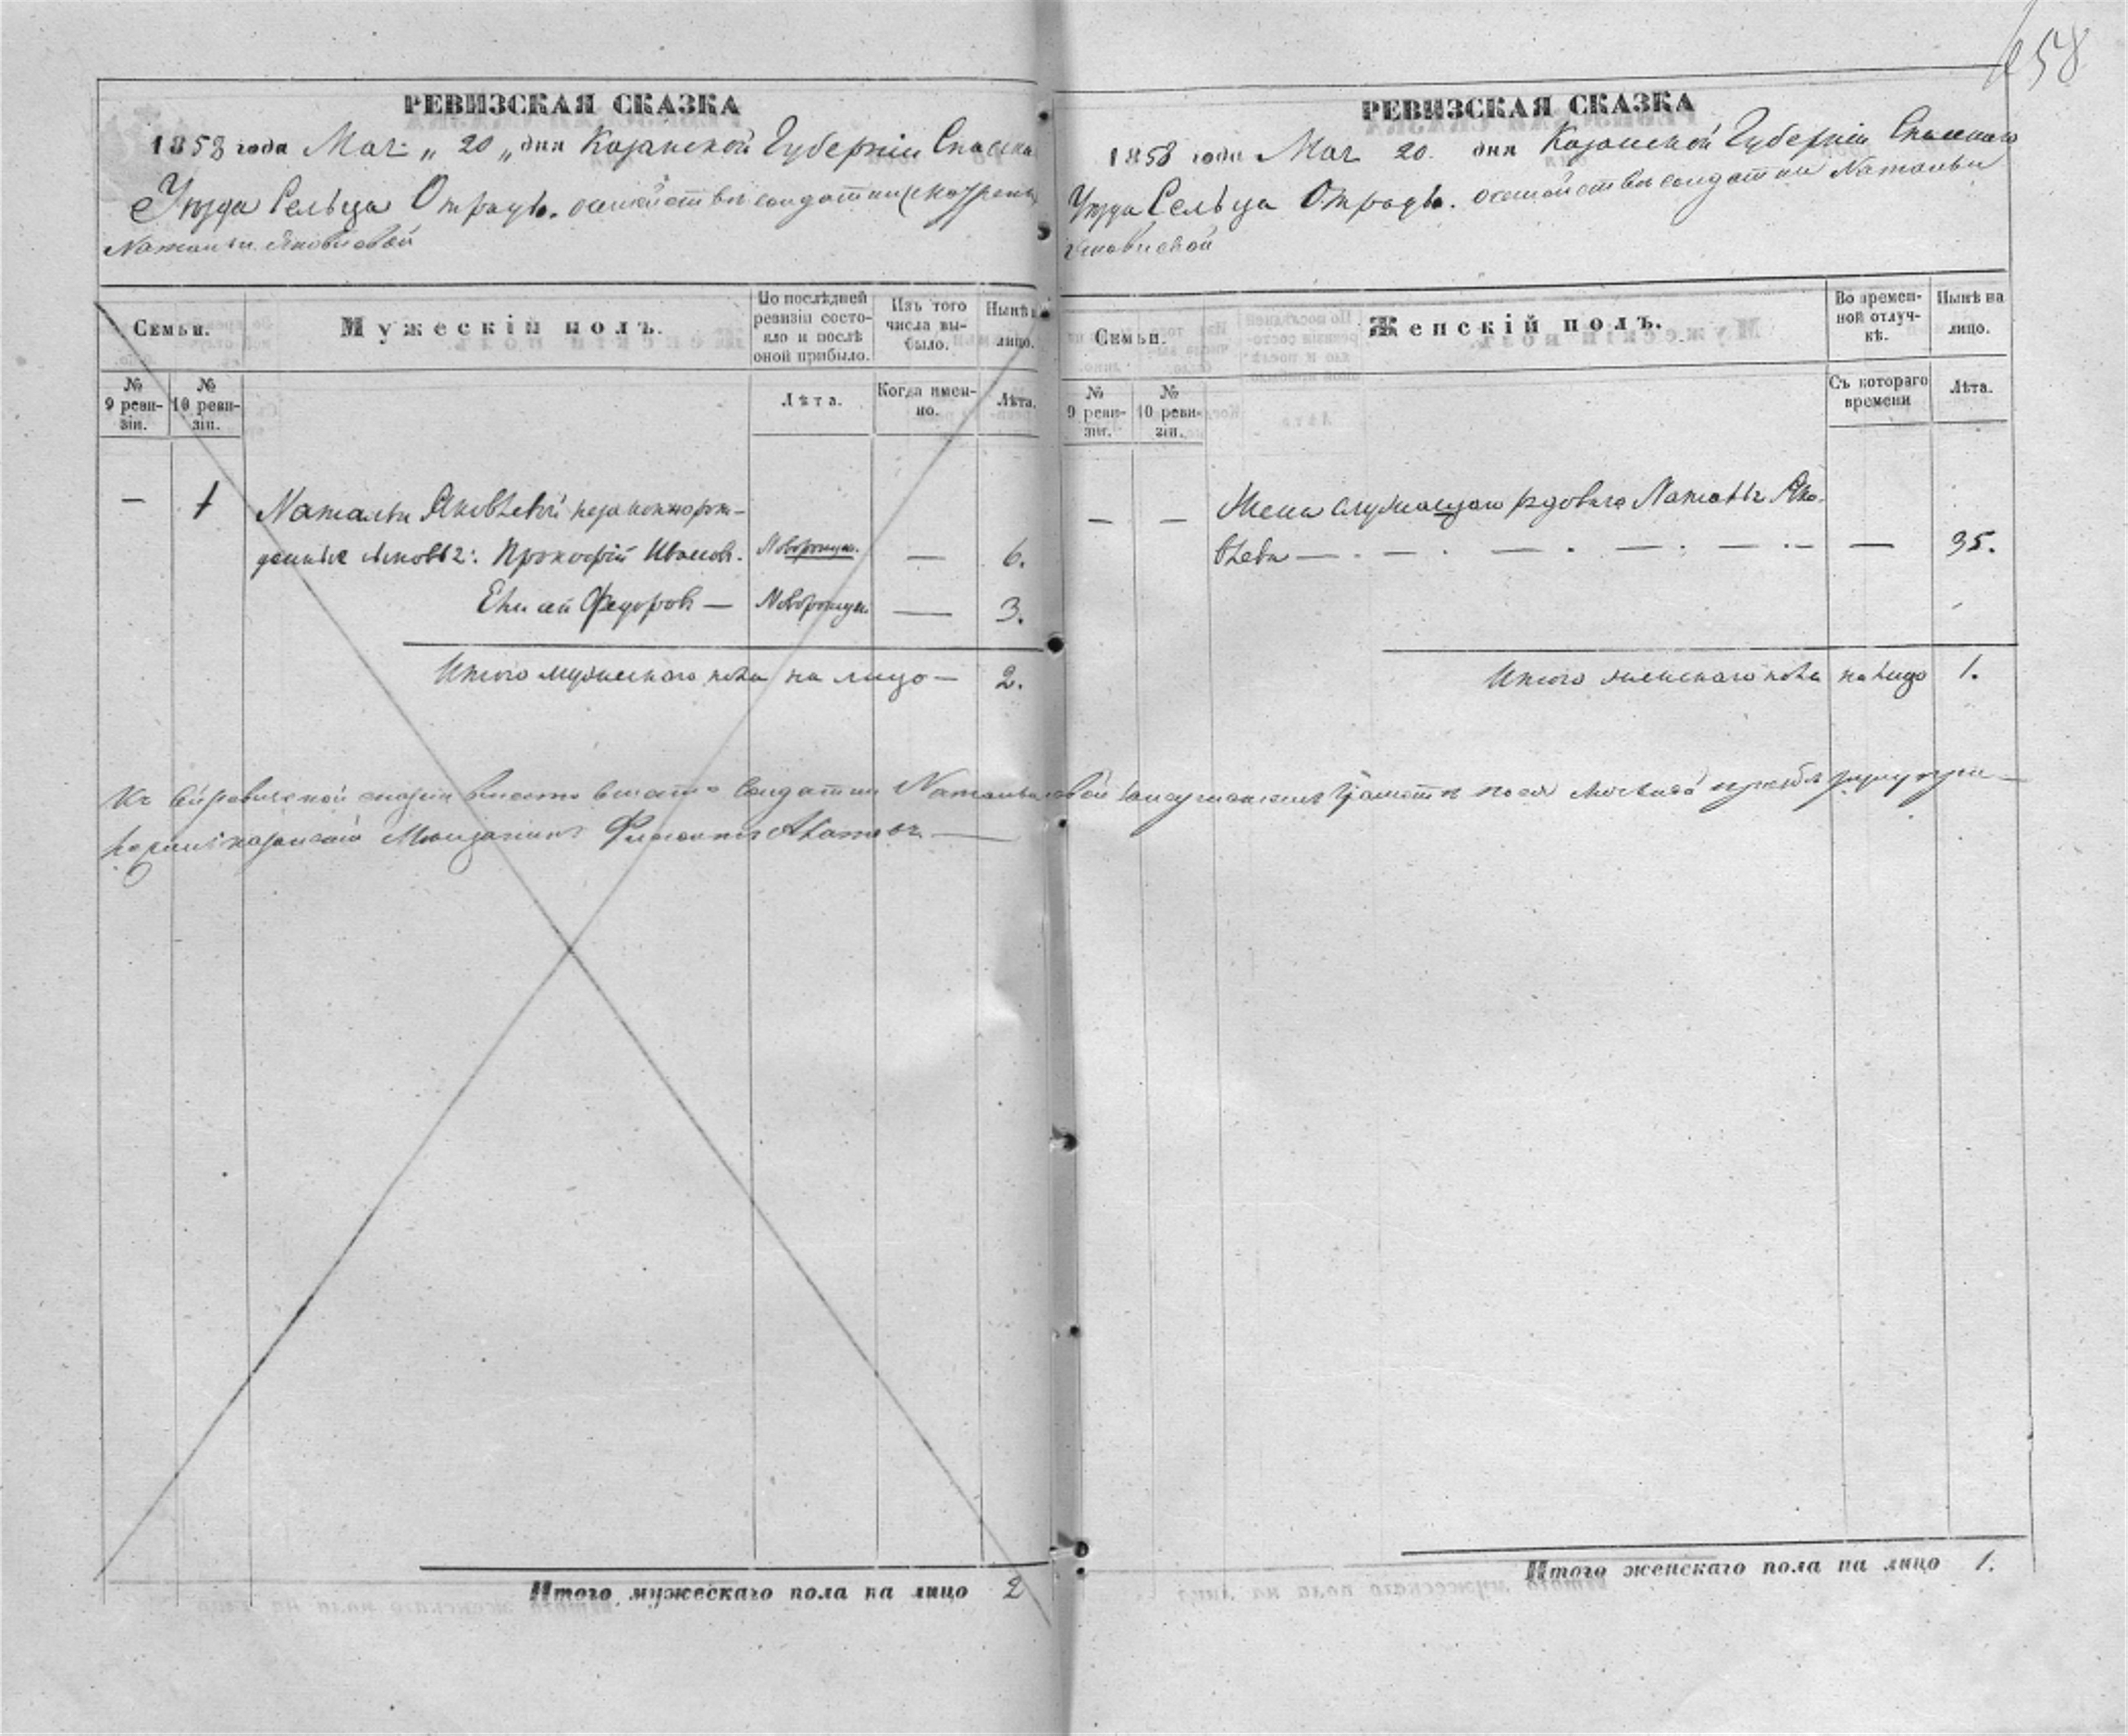 158
РЕВИЗСКАЯ СКАЗКА
1858 года Мая „ 20 „ дня Казанской Губерніи Спаска
Уѣзда Сельца Отрады. солдатки
Натальи Яковлевой
Семьи.
Мужескій полъ.
По послѣдней ревизіи состояло и послѣ оной прибыло.
Изъ того числа выбыло.
Нынѣ на лицо.
№ 9 ревизіи.
№ 10 ревизіи.
Лѣта.
Когда именно.
Лѣта.
— 1 Натальи Яковлевой незаконнорож-
денные : Прокофій Иванов. Новорожден. — 6.
Елисей Федоровъ — Новорожден. — 3.
Итого мужескаго пола на лицо — 2.
Итого мужескаго пола на лицо 2
РЕВИЗСКАЯ СКАЗКА
1858 года Мая 20. дня Казанской Губерніи Спаскаго
Уѣзда Сельца Отрады. солдатки Натальи
Семьи.
Женскій полъ.
Во временной отлучкѣ.
Нынѣ на лицо.
№ 9 ревизіи.
№ 10 ревизіи.
Съ котораго времени
Лѣта.
— — Жена служащаго рядоваго Наталья Яко-
влева — 35.
Итого женскаго пола на лицо 1.
Итого женскаго пола на лицо 1.
Къ сей ревизской сказкѣ вместо солдатки Натальи
казанскій Мещанинъ